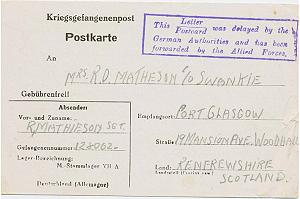 Kriegsgefangenenpost
Postkarte
Letter
This Postcard was delayed by the
German Authorities and has been
forwarded by the Allied Forces.
An
MRS. R.D. MATHESON C/O SWANKIE
Gebührenfrei!
Absender:
Vor- und Zuname:
R. MATHIESON SGT.
Gefangenennummer:
Lager-Bezeichnung:
M.-Stammlager VII A
Deutschland (Allemagne)
Empfangsort: PORT GLASGOW
Straße: 19 MANSION AVE. WOODHALL
Land: RENFREWSHIRE
SCOTLAND.